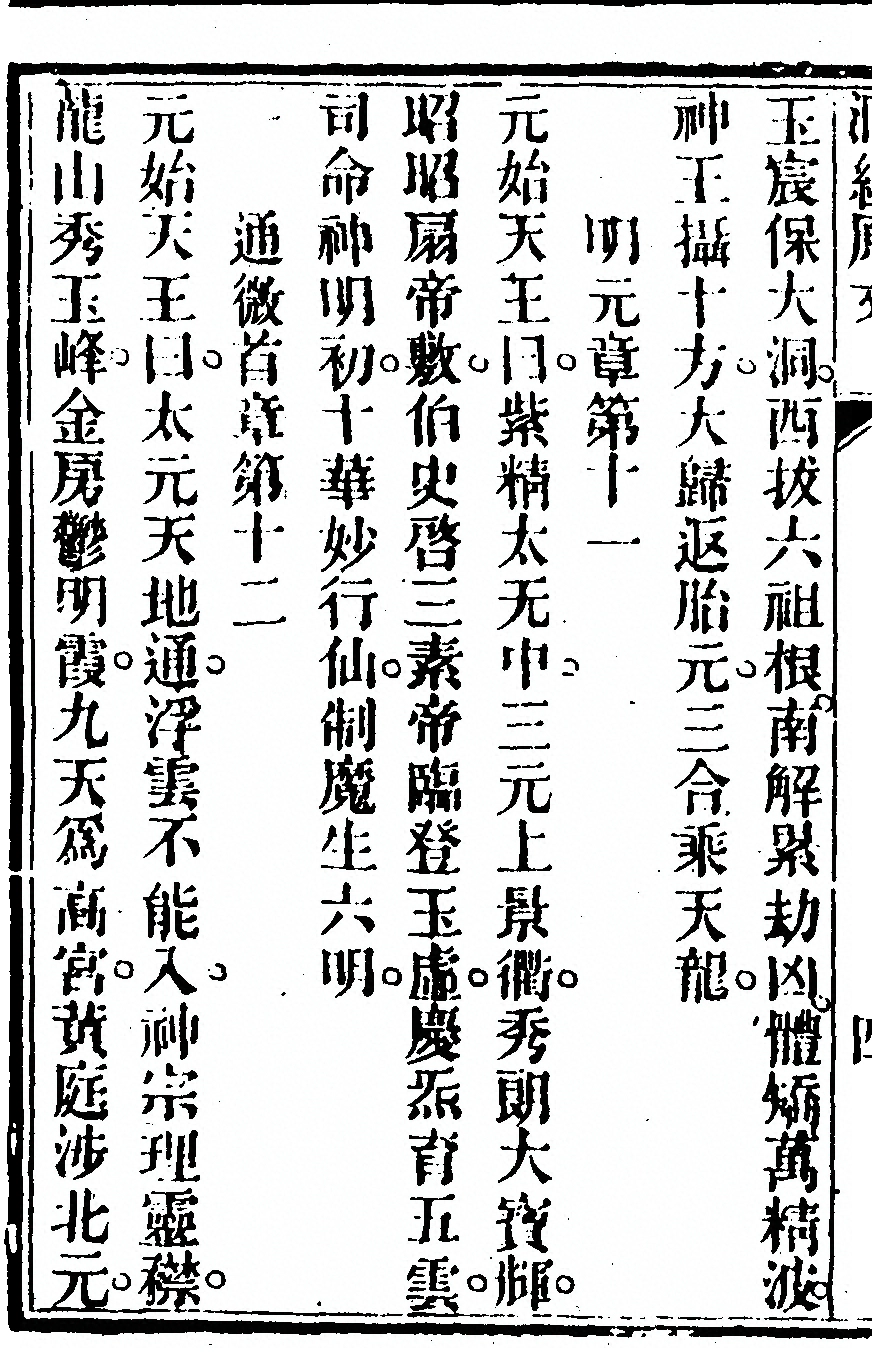 玉宸保大洞。西拔六祖根。南解累劫凶。體矯萬精波。
神王攝十方。大歸返胎元。三合乘天龍。
明元章第十一
元始天王曰。紫精太无中。三元上景衢。秀朗大寶輝。
昭昭扇帝敷。伯史啓三素。帝臨登玉虛。慶炁育五雲。
司命神明初。十華妙行仙。制魔生六明。
通微首章第十二
元始天王曰。太元天地通。浮雲不能入。神宗理靈襟。
龍山秀玉峰。金房鬱明霞。九天為高宮。黃庭涉北元。